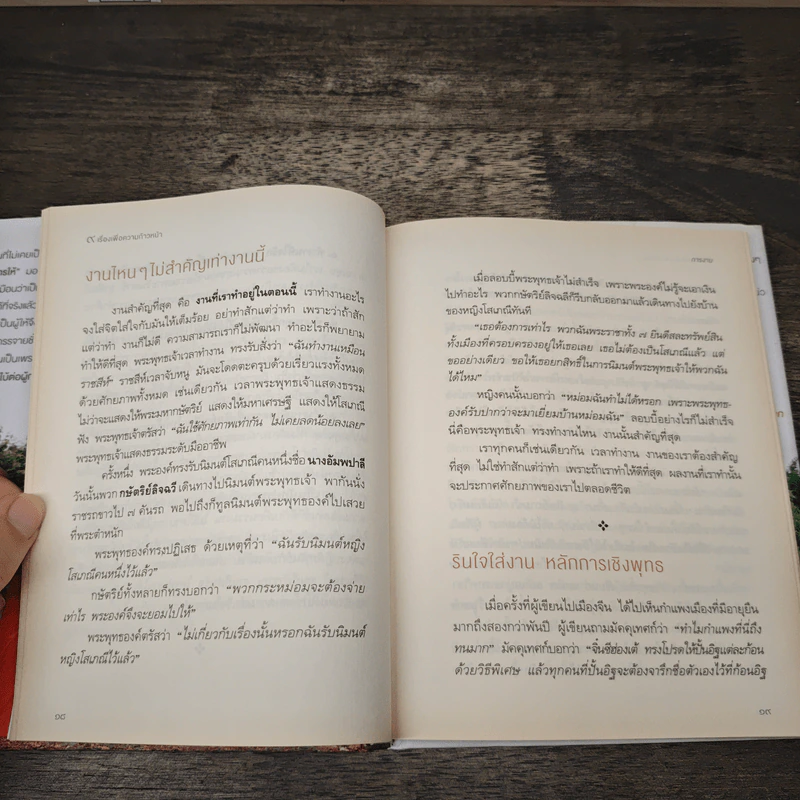 ๙ เรื่องเพื่อความก้าวหน้า
งานไหน ๆ ไม่สำคัญเท่างานนี้
งานสำคัญที่สุด คือ งานที่เราทำอยู่ในตอนนี้ เราทำงานอะไร
จงใส่จิตใส่ใจกับมันให้เต็มร้อย อย่าทำสักแต่ว่าทำ เพราะว่าถ้าสัก
แต่ว่าทำ งานก็ไม่ดี ความสามารถเราก็ไม่พัฒนา ทำอะไรก็พยายาม
ทำให้ดีที่สุด พระพุทธเจ้าเวลาทำงาน ทรงรับสั่งว่า “ฉันทำงานเหมือน
ราชสีห์” ราชสีห์เวลาจับหนู มันจะโดดตะครุบด้วยเรี่ยวแรงทั้งหมด
ด้วยศักยภาพทั้งหมด เช่นเดียวกัน เวลาพระพุทธเจ้าแสดงธรรม
ไม่ว่าจะแสดงให้พระมหากษัตริย์ แสดงให้มหาเศรษฐี แสดงให้โสเภณี
ฟัง พระพุทธเจ้าตรัสว่า “ฉันใช้ศักยภาพเท่ากัน ไม่เคยลดน้อยลงเลย”
พระพุทธเจ้าแสดงธรรมระดับมืออาชีพ
ครั้งหนึ่ง พระองค์ทรงรับนิมนต์โสเภณีคนหนึ่งชื่อ นางอัมพปาลี
วันนั้นพวก กษัตริย์ลิจฉวี เดินทางไปนิมนต์พระพุทธเจ้า พากันนั่ง
ราชรถขาวไป ๗ คันรถ พอไปถึงก็ทูลนิมนต์พระพุทธองค์ไปเสวย
ที่พระตำหนัก
พระพุทธองค์ทรงปฏิเสธ ด้วยเหตุที่ว่า “ฉันรับนิมนต์หญิง
โสเภณีคนหนึ่งไว้แล้ว”
กษัตริย์ทั้งหลายก็ทรงบอกว่า “พวกกระหม่อมจะต้องจ่าย
เท่าไร พระองค์จึงจะยอมไปให้”
พระพุทธองค์ตรัสว่า “ไม่เกี่ยวกับเรื่องนั้นหรอกฉันรับนิมนต์
หญิงโสเภณีไว้แล้ว”
การงาน
เมื่อลอบบี้พระพุทธเจ้าไม่สำเร็จ เพราะพระองค์ไม่รู้จะเอาเงิน
ไปทำอะไร พวกกษัตริย์ลิจฉวีก็รีบกลับออกมาแล้วเดินทางไปยังบ้าน
ของหญิงโสเภณีทันที
“เธอต้องการเท่าไร พวกฉันพระราชาทั้ง ๗ ยินดีสละทรัพย์สิน
ทั้งเมืองที่ครอบครองอยู่ให้เธอเลย เธอไม่ต้องเป็นโสเภณีแล้ว แต่
ขออย่างเดียว ขอให้เธอยกสิทธิ์ในการนิมนต์พระพุทธเจ้าให้พวกฉัน
ได้ไหม”
หญิงคนนั้นบอกว่า “หม่อมฉันทำไม่ได้หรอก เพราะพระพุทธ-
องค์รับปากว่าจะมาเยี่ยมบ้านหม่อมฉัน” ลอบบี้อย่างไรก็ไม่สำเร็จ
นี่คือพระพุทธเจ้า ทรงทำงานไหน งานนั้นสำคัญที่สุด
เราทุกคนก็เช่นเดียวกัน เวลาทำงาน งานของเราต้องสำคัญ
ที่สุด ไม่ใช่ทำสักแต่ว่าทำ เพราะถ้าเราทำให้ดีที่สุด ผลงานที่เราทำนั้น
จะประกาศศักยภาพของเราไปตลอดชีวิต
รินใจใส่งาน หลักการเชิงพุทธ
เมื่อครั้งที่ผู้เขียนไปเมืองจีน ได้ไปเห็นกำแพงเมืองที่มีอายุยืน
มากถึงสองกว่าพันปี ผู้เขียนถามมัคคุเทศก์ว่า “ทำไมกำแพงที่นี่ถึง
ทนมาก” มัคคุเทศก์บอกว่า “จิ๋นซีฮ่องเต้ ทรงโปรดให้ปั้นอิฐแต่ละก้อน
ด้วยวิธีพิเศษ แล้วทุกคนที่ปั้นอิฐจะต้องจารึกชื่อตัวเองไว้ที่ก้อนอิฐ